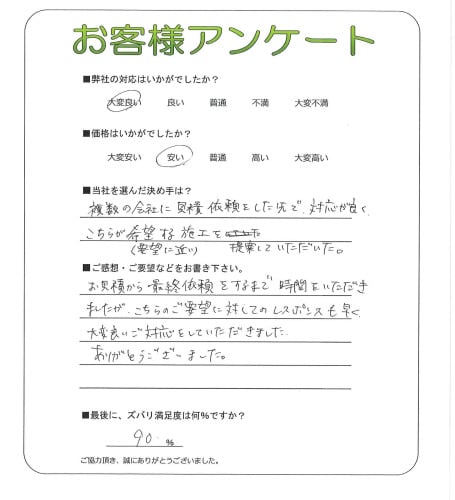 お客様アンケート
■弊社の対応はいかがでしたか？
大変良い 良い 普通 不満 大変不満
■価格はいかがでしたか？
大変安い 安い 普通 高い 大変高い
■当社を選んだ決め手は？
複数の会社に見積依頼をした先で、対応が良く、
こちらが希望する施工を
(要望に近い) 提案していただいた。
■ご感想・ご要望などをお書き下さい。
お見積から最終依頼をするまで時間をいただき
ましたが、こちらのご要望に対してのレスポンスも早く、
大変良いご対応をしていただきました。
ありがとうございました。
■最後に、ズバリ満足度は何%ですか？
90. %
ご協力頂き、誠にありがとうございました。